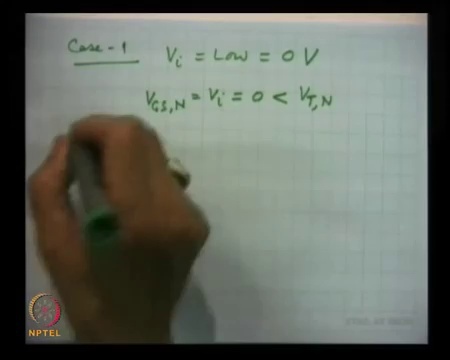 Case-1 V_i = Low = 0 V
V_GS,N = V_i = 0 < V_T,N
NPTEL